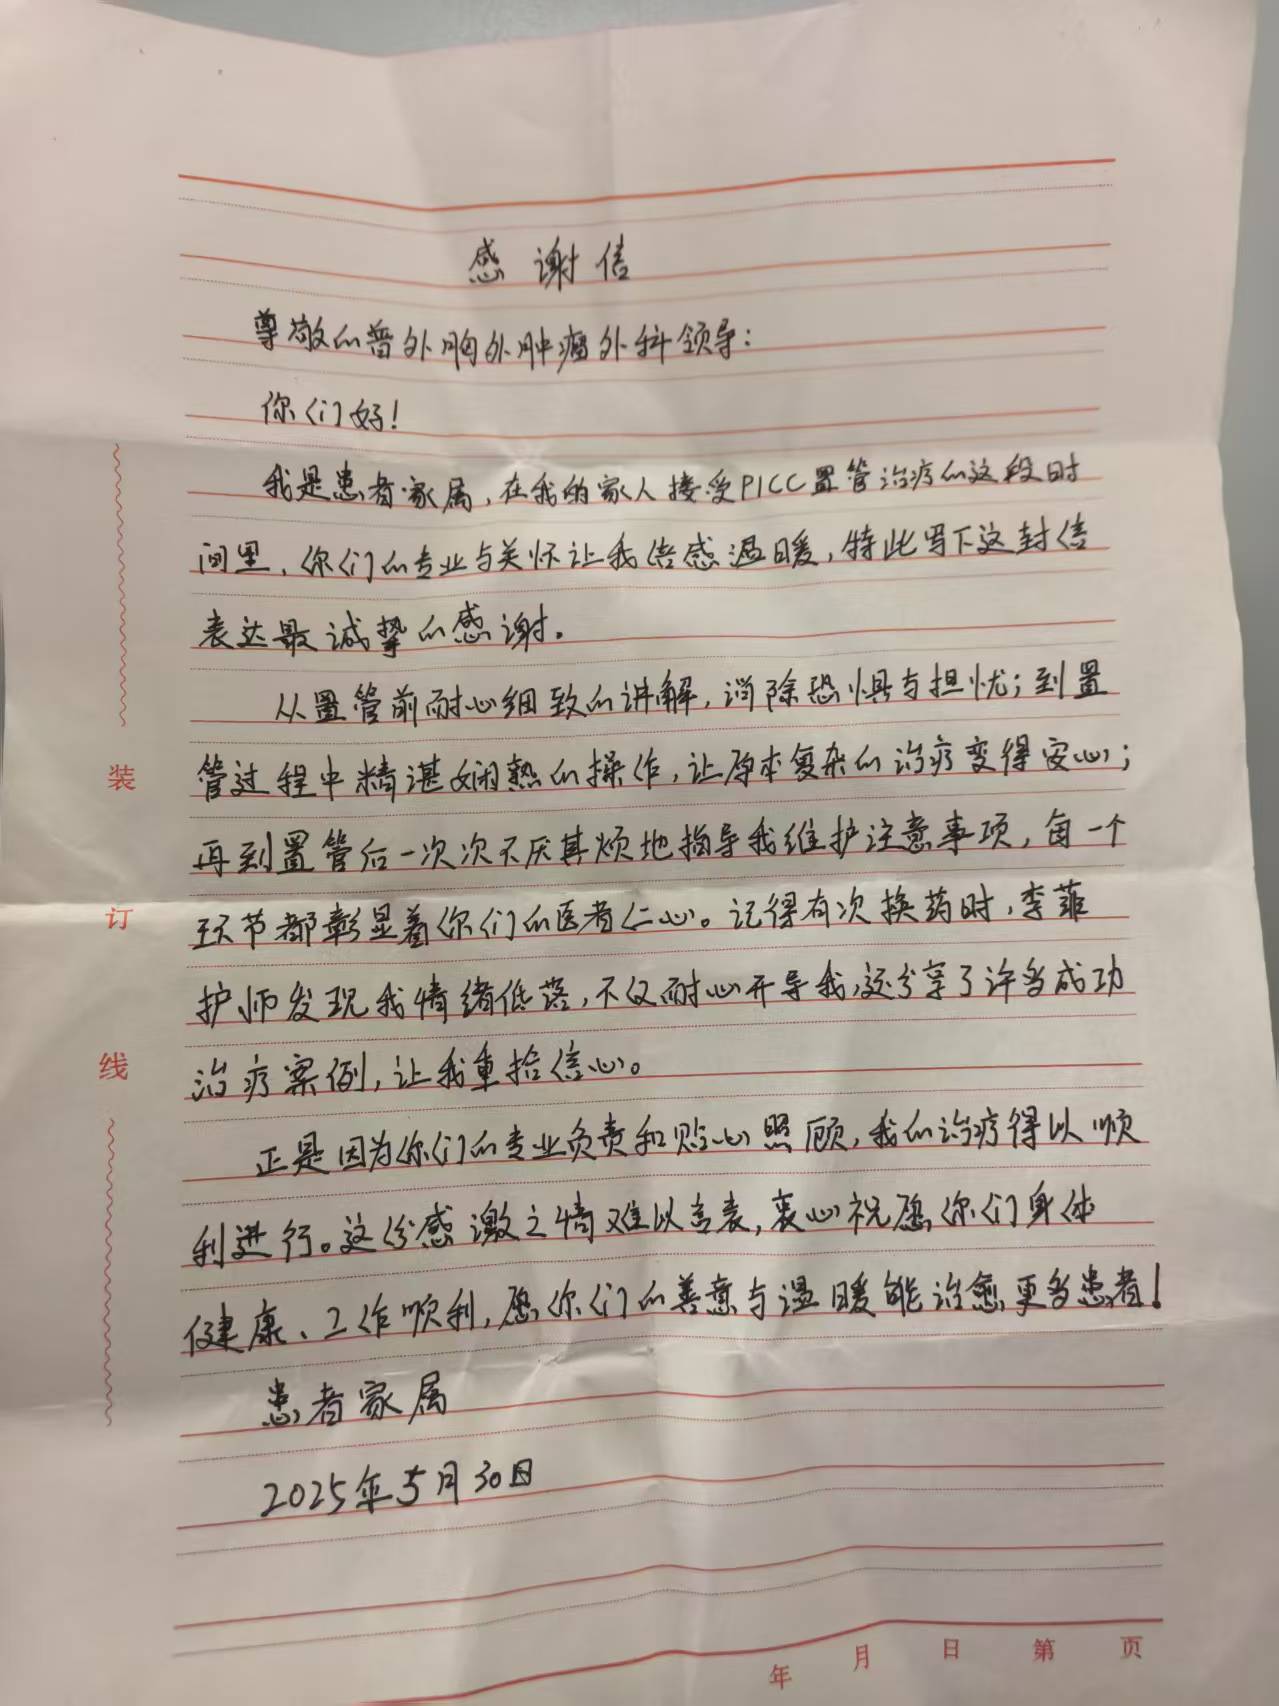 感谢信
尊敬的普外胸外肿瘤外科领导：
你们好！
我是患者家属，在我的家人接受PICC置管治疗的这段时
间里，你们的专业与关怀让我倍感温暖，特此写下这封信
表达最诚挚的感谢。
从置管前耐心细致的讲解，消除恐惧与担忧；到置
管过程中精湛娴熟的操作，让原本复杂的治疗变得安心；
再到置管后一次次不厌其烦地指导我维护注意事项，每一个
环节都彰显着你们的医者仁心。记得有次换药时，李菲
护师发现我情绪低落，不仅耐心开导我，还分享了许多成功
治疗案例，让我重拾信心。
正是因为你们的专业负责和贴心照顾，我的治疗得以顺
利进行。这份感激之情难以言表，衷心祝愿你们身体
健康、工作顺利，愿你们的善意与温暖能治愈更多患者！
患者家属
2025年5月30日
装
订
线
年 月 日 第 页